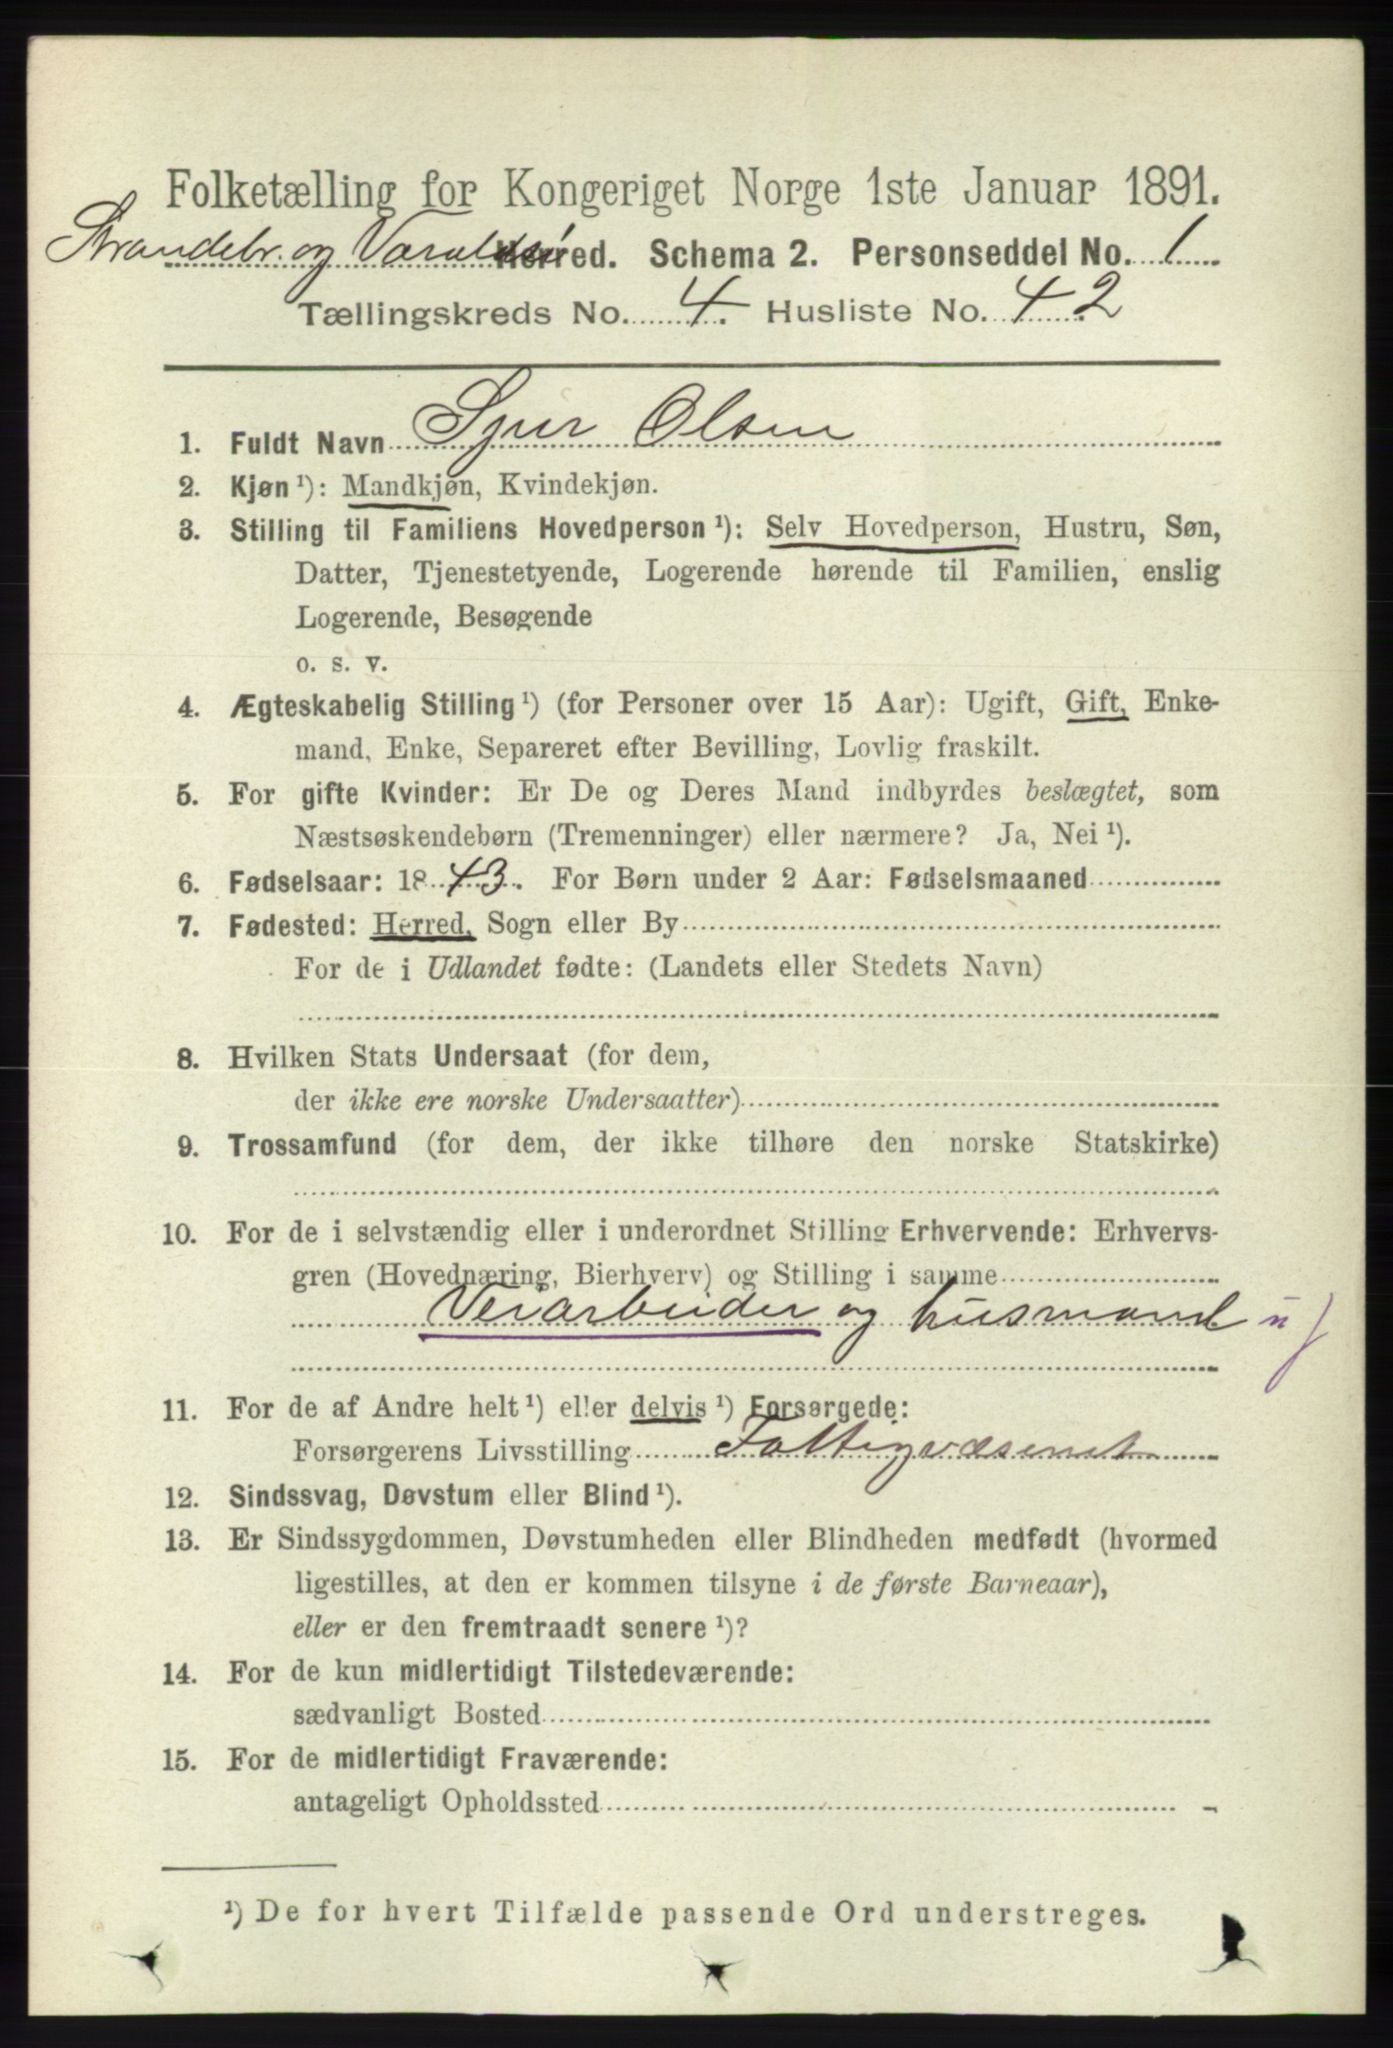 Folketælling for Kongeriget Norge 1ste Januar 1891.
Strandebr. og Varaldsø Herred. Schema 2. Personseddel No. 1
Tællingskreds No. 4. Husliste No. 42
1. Fuldt Navn Sjur Olsen
2. Kjøn ¹): Mandkjøn, Kvindekjøn.
3. Stilling til Familiens Hovedperson ¹): Selv Hovedperson, Hustru, Søn,
Datter, Tjenestetyende, Logerende hørende til Familien, enslig
Logerende, Besøgende
o. s. v.
4. Ægteskabelig Stilling ¹) (for Personer over 15 Aar): Ugift, Gift, Enke-
mand, Enke, Separeret efter Bevilling, Lovlig fraskilt.
5. For gifte Kvinder: Er De og Deres Mand indbyrdes beslægtet, som
Næstsøskendebørn (Tremenninger) eller nærmere? Ja, Nei ¹).
6. Fødselsaar: 1843. For Børn under 2 Aar: Fødselsmaaned
7. Fødested: Herred, Sogn eller By
For de i Udlandet fødte: (Landets eller Stedets Navn)
8. Hvilken Stats Undersaat (for dem,
der ikke ere norske Undersaatter)
9. Trossamfund (for dem, der ikke tilhøre den norske Statskirke)
10. For de i selvstændig eller i underordnet Stilling Erhvervende: Erhvervs-
gren (Hovednæring, Bierhverv) og Stilling i samme
Veiarbeider og husmand
11. For de af Andre helt ¹) eller delvis ¹) Forsørgede:
Forsørgerens Livsstilling Fattigvæsenet
12. Sindssvag, Døvstum eller Blind ¹).
13. Er Sindssygdommen, Døvstumheden eller Blindheden medfødt (hvormed
ligestilles, at den er kommen tilsyne i de første Barneaar),
eller er den fremtraadt senere ¹)?
14. For de kun midlertidigt Tilstedeværende:
sædvanligt Bosted
15. For de midlertidigt Fraværende:
antageligt Opholdssted
¹) De for hvert Tilfælde passende Ord understreges.